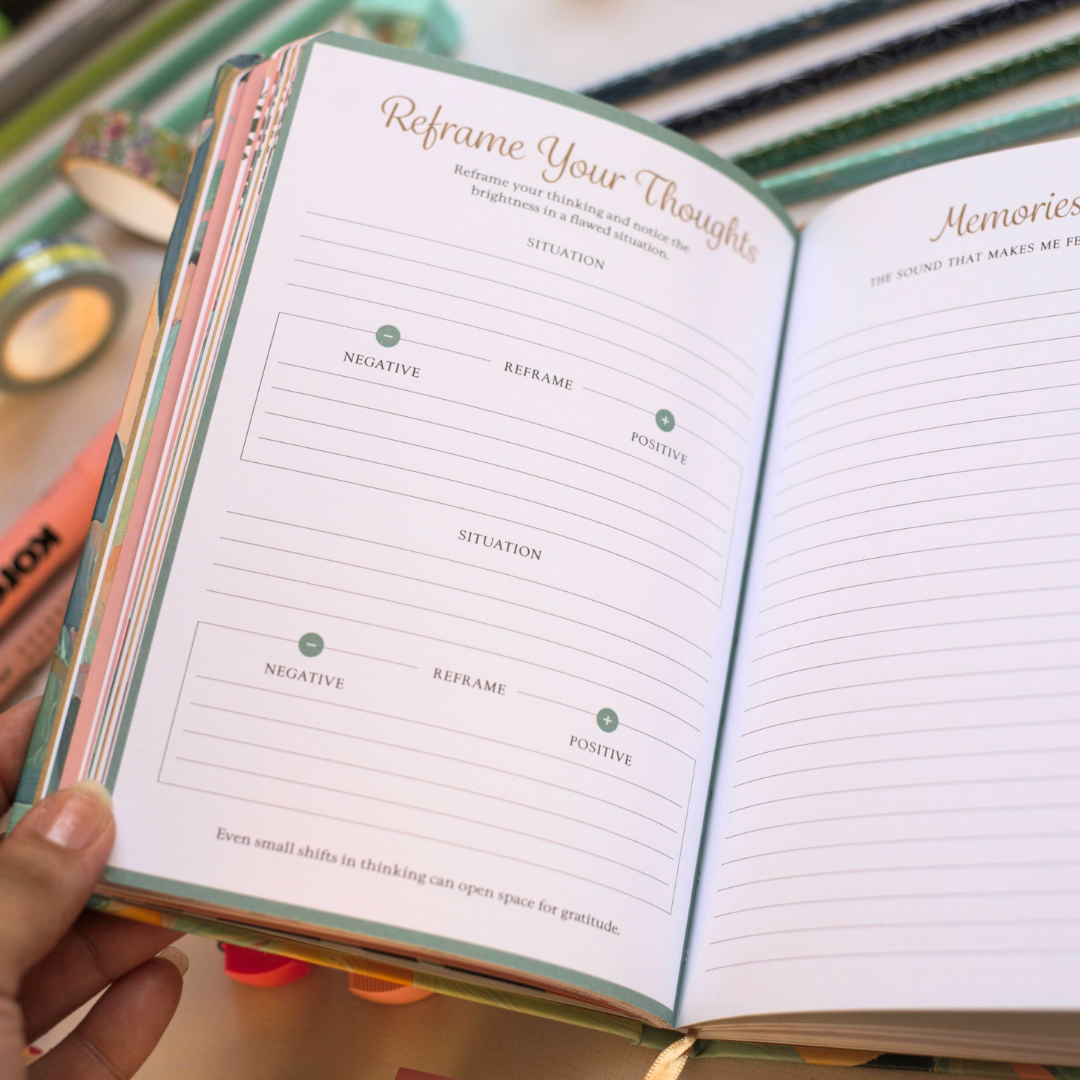 Reframe Your Thoughts
Reframe your thinking and notice the
brightness in a flawed situation.
SITUATION
−
NEGATIVE
REFRAME
+
POSITIVE
SITUATION
−
NEGATIVE
REFRAME
+
POSITIVE
Even small shifts in thinking can open space for gratitude.
Memories
THE SOUND THAT MAKES ME